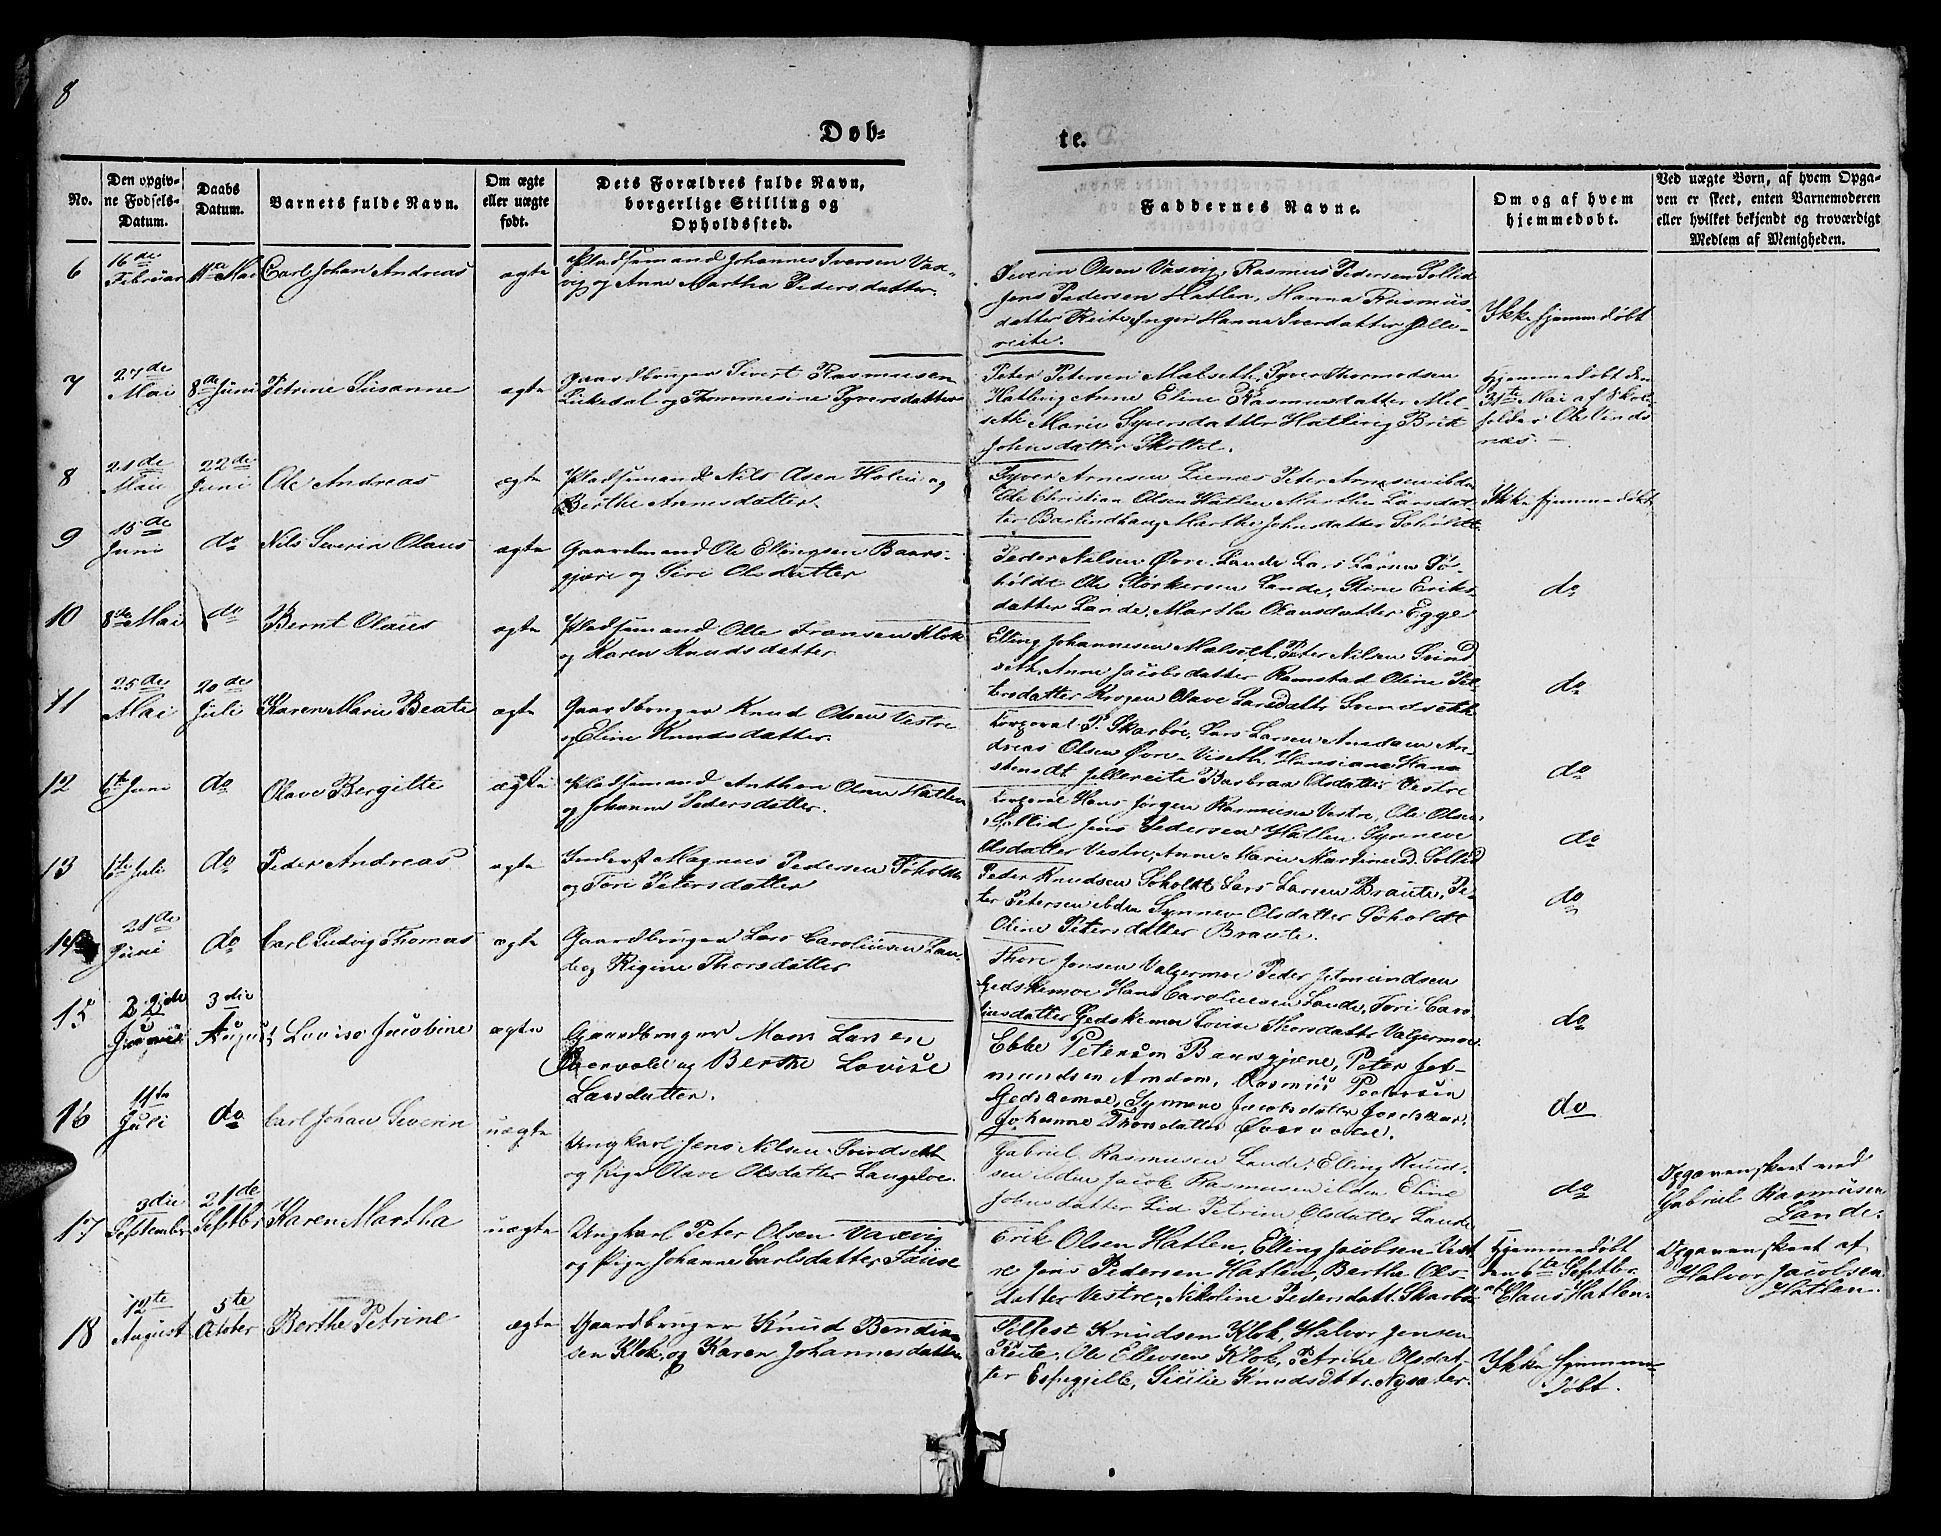 8
Døb-
te.
No.
Den opgiv-
ne Fødsels-
Datum.
Daabs
Datum.
Barnets fulde Navn.
Om ægte
eller uægte
født.
Dets Forældres fulde Navn,
borgerlige Stilling og
Opholdssted.
Faddernes Navne.
Om og af hvem
hjemmedøbt.
Ved uægte Børn, af hvem Opga-
ven er skeet, enten Barnemoderen
eller hvilket bekjendt og troværdigt
Medlem af Menigheden.
6
16de
Februar
11te Mai
Carl Johan Andreas
ægte
Pladsemand Johannes Iversen Vax-
vig og Anne Martha Pedersdatter.
Severin Olsen Vaxvig, Rasmus Pedersen Sollid
Jens Pedersen Hatlen, Hanna Rasmus
datter Reite, Inger Hanna Iversdatter Jelle-
reite.
Ikke hjemmedøbt
7
27de
Mai
8de Juni
Petrine Susanne
ægte
Gaardbruger Sivert Rasmusen
og Thommesine Syversdatter
Peter Petersen Malseth, Syver Thormodsen
Anne Eline Rasmusdatter
Marie Syversdatter
Johnsdatter
Hjemmedøbt den
31te Mai af Skole-
holder Ole Vinds
næs.
8
21de
Mai
22de
Juni
Ole Andreas
ægte
Pladsemand Nils Olsen Holen og
Birthe Arnesdatter.
Syver Arnesen Lienæs Peter Arnesen ibden
Ole Christian Olsen Hatlen Marthe Larsdat-
ter Barlindhaug Marthe Johnsdatter Søholdt
Ikke hjemmedøbt
9
15de
Juni
do
Nils Severin Olaus
ægte
Gaardmand Ole Ellingsen Baars-
gjære og Siri Olsdatter
Peder Nilsen Øvre Lande Lars Larsen Sø-
holdt Ole Størkersen Lande, Stine Eriks
datter Lande, Martha Olausdatter Egge
do
10
8de Mai
do
Bernt Olaus
ægte
Pladsemand Olle Fransen Klok
og Karen Knudsdatter
Elling Johannesen Malseth, Peter Nilsen Svind
seth, Anne Jacobsdatter Ramstad Oline Pe-
tersdatter Krogen Olave Larsdatter Svindseth
do
11
25de
Mai
20de
Juli
Karen Marie Beate
ægte
Gaardbruger Knud Olsen Vestre
og Eline Knudsdatter.
Korporal P. Skarbøe, Lars Larsen Amdam An-
dreas Olsen Øvre-Viseth Hansiane Hans
Jellereite Barbraa Olsdatter Vestre
do
12
6te Juni
do
Olave Bergitte
ægte
Pladsemand Anthon Olsen Hatlen
og Johanne Pedersdatter.
Korporal Hans Jørgen Rasmusen Vestre, Ole Olsen
Sollid Jens Pedersen Hatlen Synneve
Olsdatter Vestre, Anne Marie Martinusd. Sollid
do
13
6te Juli
do
Peder Andreas
ægte
Inderst Magnus Pedersen Søholdt
og Tori Petersdatter
Peder Knudsen Søholdt Lars Larsen Braute, Pe-
ter Petersen ibden Synnev Olsdatter Søholdt
Oline Petersdatter Braute.
do
14
21de
Juni
do
Carl Ludvig Thomas
ægte
Gaardbruger Lars Carolusen Lan-
de og Rigine Thorsdatter
Thore Jensen Valgermoe Peder Jetmundsen
Gedskemoe Hans Carolusen Lande, Tori Caro-
liusdatter Gedskemoe Lovise Thorsdatter Valgermoe
do
15
22de
Juni
3die
August
Lovise Jacobine
ægte
Gaardbruger Mons Larsen
Overvold og Berthe Lovise
Larsdatter.
Ebbe Petersen Baarsgjære, Peter Jet-
mundsen Amdam, Rasmus Pedersen
Gedskemoe, Synneve Jacobsdatter
Johanne Thorsdatter Overvold.
do
16
11te
Juli
do
Carl Johan Severin
uægte
Ungkarl Jens Nilsen Svindseth
og Pige Olave Olsdatter Langeloe.
Gabriel Rasmusen Lande, Elling Knud-
sen ibden Jacob Rasmusen ibden Eline
Johnsdatter Lid Petrine Olsdatter Lande
do
Opgaven skeet ved
Gabriel Rasmusen
Lande.
17
3die
September
21de
Septbr
Karen Martha
uægte
Ungkarl Peter Olsen Vaxvig
og Pige Johanne Carlsdatter
Erik Olsen Hatlen, Elling Jacobsen Vest
re Jens Pedersen Hatlen, Berthe Ols-
datter Vestre, Nikoline Pedersdatt. Skarbø
Hjemmedøbt
den 6te Septbr
af Claus Hatlen.
Opgaven skeet af
Halvor Jacobsen
Hatlen.
18
12te
August
5te
Octber
Berthe Petrine
ægte
Gaardbruger Knud Bendix-
sen Klok, og Karen Johannesdatter
Solfest Knudsen Klok, Halvor Jensen
Reite, Ole Ellevsen Klok, Petrine Olsdat-
ter Espegjelle, Sicilie Knudsdtr. Nysæter.
Ikke hjemme-
døbt.